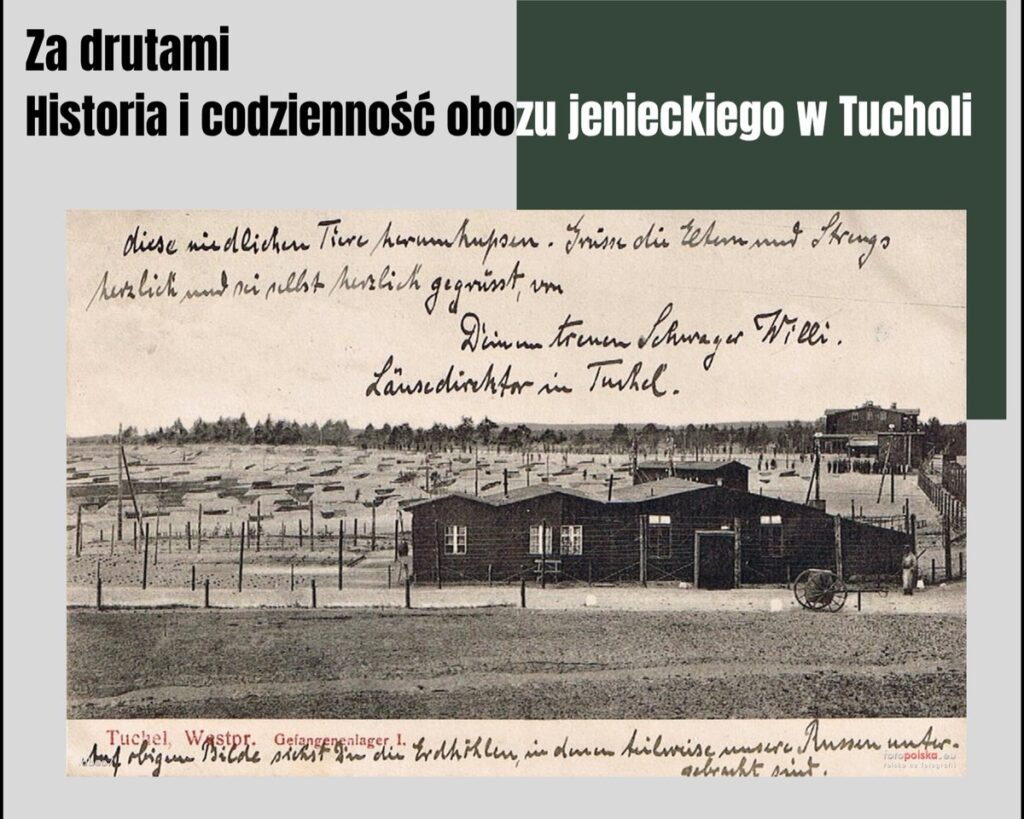 Za drutami
Historia i codzienność obozu jenieckiego w Tucholi
diese niedlichen Tiere herumhupsen. Grüsse die Eltern und Strengs
herzlich und sei selbst herzlich gegrüsst, von
Deinem treuen Schwager Willi.
Läusedirektor in Tuchel.
Tuchel, Westpr. Gefangenenlager I.
Auf obigem Bilde siehst Du die Erdhöhlen, in denen teilweise unsere Russen unter-
gebracht sind.
fotopolska.eu
Polska na fotografii